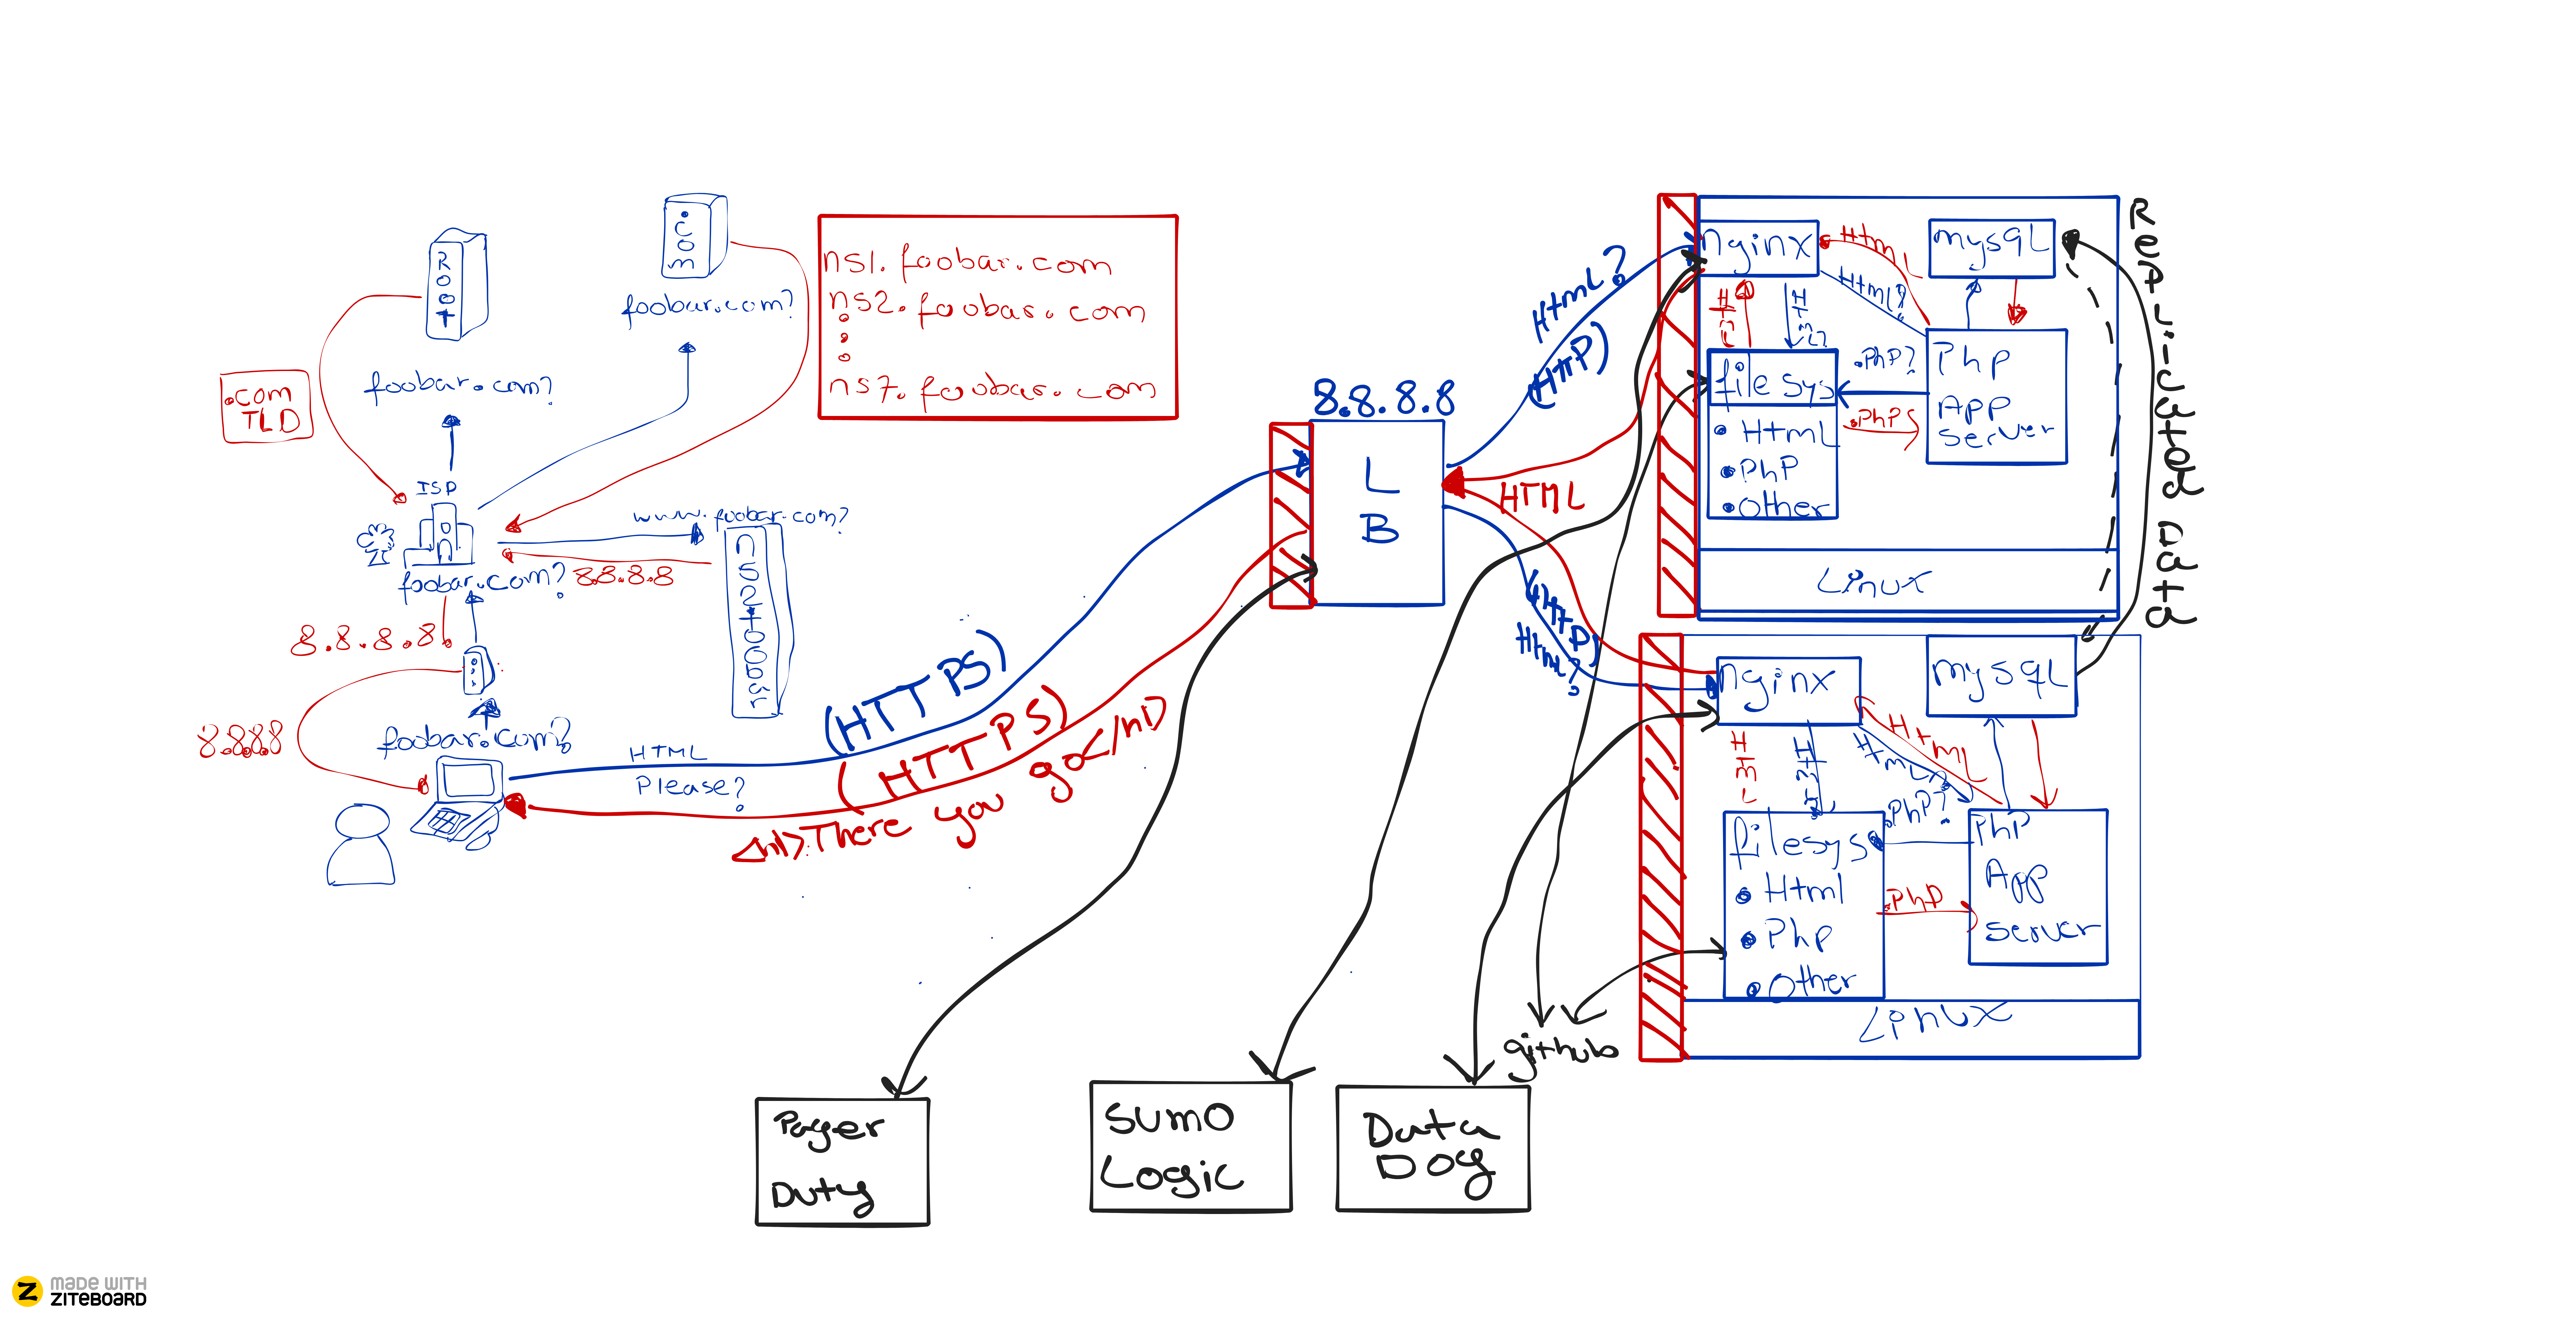 Root
.com
foobar.com?
ns1.foobar.com
ns2.foobar.com
ns7.foobar.com
.com
TLD
foobar.com?
ISP
www.foobar.com?
foobar.com?
8.8.8.8
ns2.foobar
8.8.8.8
8.8.8.8
foobar.com?
HTML
Please?
(HTTPS)
(HTTPS)
<h1>There you go</h1>
8.8.8.8
L
B
Html?
(HTTP)
HTML
(HTTP)
Html?
nginx
Html
Html?
mysql
Html
Html?
file sys
Html
PhP
Other
.PhP?
.PhPs
Php
App
server
Linux
nginx
Html
Html?
mysql
Html
Html?
filesys
Html
Php
Other
.PhP?
.PhP
PhP
App
Server
Linux
github
Pager
Duty
Sumo
Logic
Data
Dog
MADE WITH
ZITEBOARD